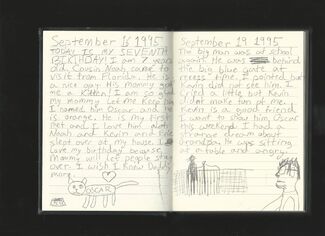 September 16 1995
TODAY IS MY SEVENTH
BIRTHDAY! I am 7 years
old. Cousin Noah came to
visit from Florida. He is
a nice guy. His mommy got
me a kitten! I am so glad
my Mommy Let me keep him.
I named him Oscar and he
is orange. He is my first
Pet and I Love him a lot.
Noah and Kevin and I all
slept over at my house. I
Love my birthday because
Mommy will let people stay
over. I wish I knew Daddy
more.
OSCAR
September 19 1995
The big man was at school
again. He was behind
the big blue gate at
recess time. I pointed but
Kevin did not see him. I
cried a little but Kevin
didnt make fun of me.
Kevin is a good friend.
I want to show him Oscar
this weekend. I had a
strange dream about
Grandpa. He was sitting
at a table and angry.